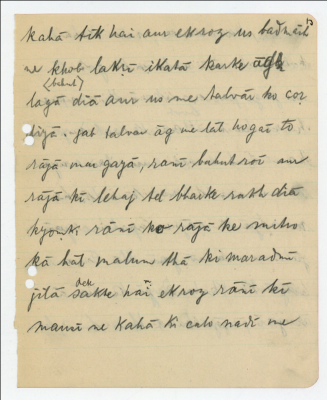 kahā tīk hai aur ek roz us badmāś
ne khob lakṛī ikatā karke āg
(bahut)
lagā diā aur us me talvār ko coṛ
diyā. jab talvar āg me lāl hogaī to
rājā mar gayā, rānī bahut roī aur
rājā kī lehaj tel bharke rakh diā
kyoṇki rānī ko rājā ke mitro
kā hāl malum thā ki maradmī
jilā dek sakte haĩ ek roz rānī kī
mausī ne kahā ki calo nadī me